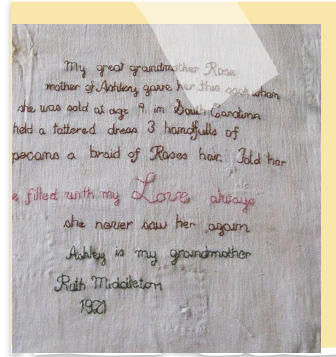 My great grandmother Rose
mother of Ashley gave her this sack when
she was sold at age 9 in South Carolina
held a tattered dress 3 handfulls of
pecans a braid of Roses hair. Told her
filled with my Love always
she never saw her again
Ashley is my grandmother
Ruth Middleton
1921